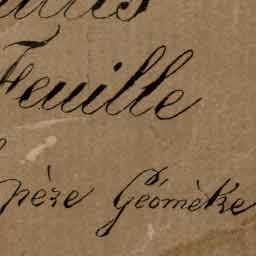 Feuille
père Géomètre